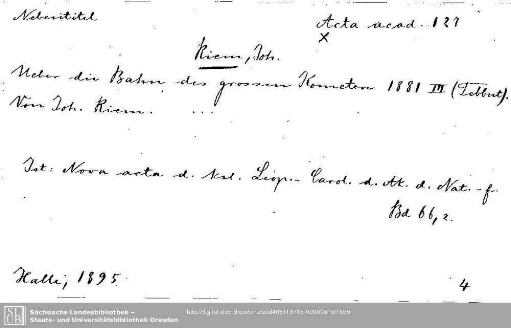 Nebentitel
Acta acad. 127
x
Riem, Joh.
Ueber die Bahn des grossen Kometen 1881 III (Tebbut).
Von Joh. Riem. ...
Ist: Nova acta d. ksl. Leop.- Carol. d. Ak. d. Nat.-f.
Bd 66, 2.
Halle, 1895
4
SLUB
Sächsische Landesbibliothek –
Staats- und Universitätsbibliothek Dresden